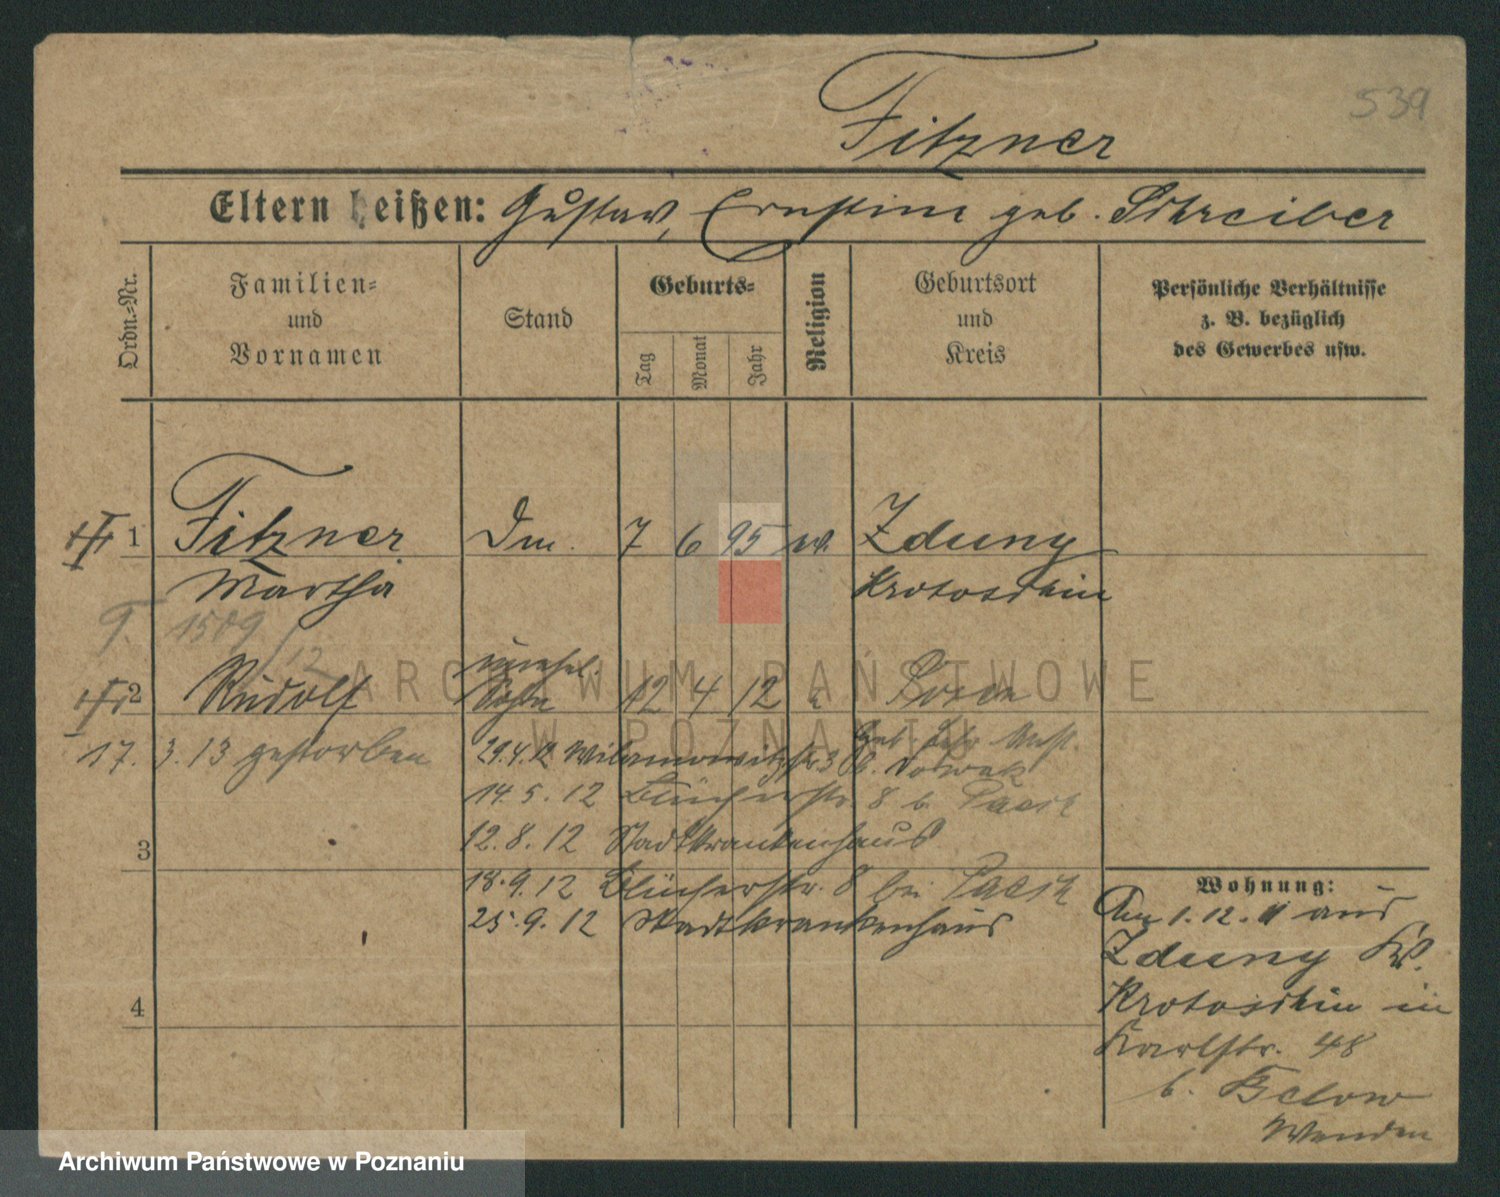 539
Fitzner
Eltern heißen: Gustav, Ernstine geb. Schreiber
Ordn.-Nr.
Familien-
und
Vornamen
Stand
Geburts-
Tag
Monat
Jahr
Religion
Geburtsort
und
Kreis
Persönliche Verhältnisse
z. B. bezüglich
des Gewerbes usw.
1 Fitzner Dm. 7 6 95 Zduny
Martha Krotoschin
1509
12
unehel.
2 Rudolf Sohn 12 4 12 Posen
17. 3. 13 gestorben
29.4.12 Wilamowitzstr 3 b. Nowak
14. 5. 12 Blücherstr. 8 b.
3
12. 8. 12 Stadtkrankenhaus
18. 9. 12 Blücherstr. 8 bei
25. 9. 12 Stadtkrankenhaus
4
Wohnung:
Am 1. 12. 11 aus
Zduny Kr.
Krotoschin in
Karlstr. 48
b. Below
ARCHIWUM PAŃSTWOWE
W POZNANIU
Archiwum Państwowe w Poznaniu